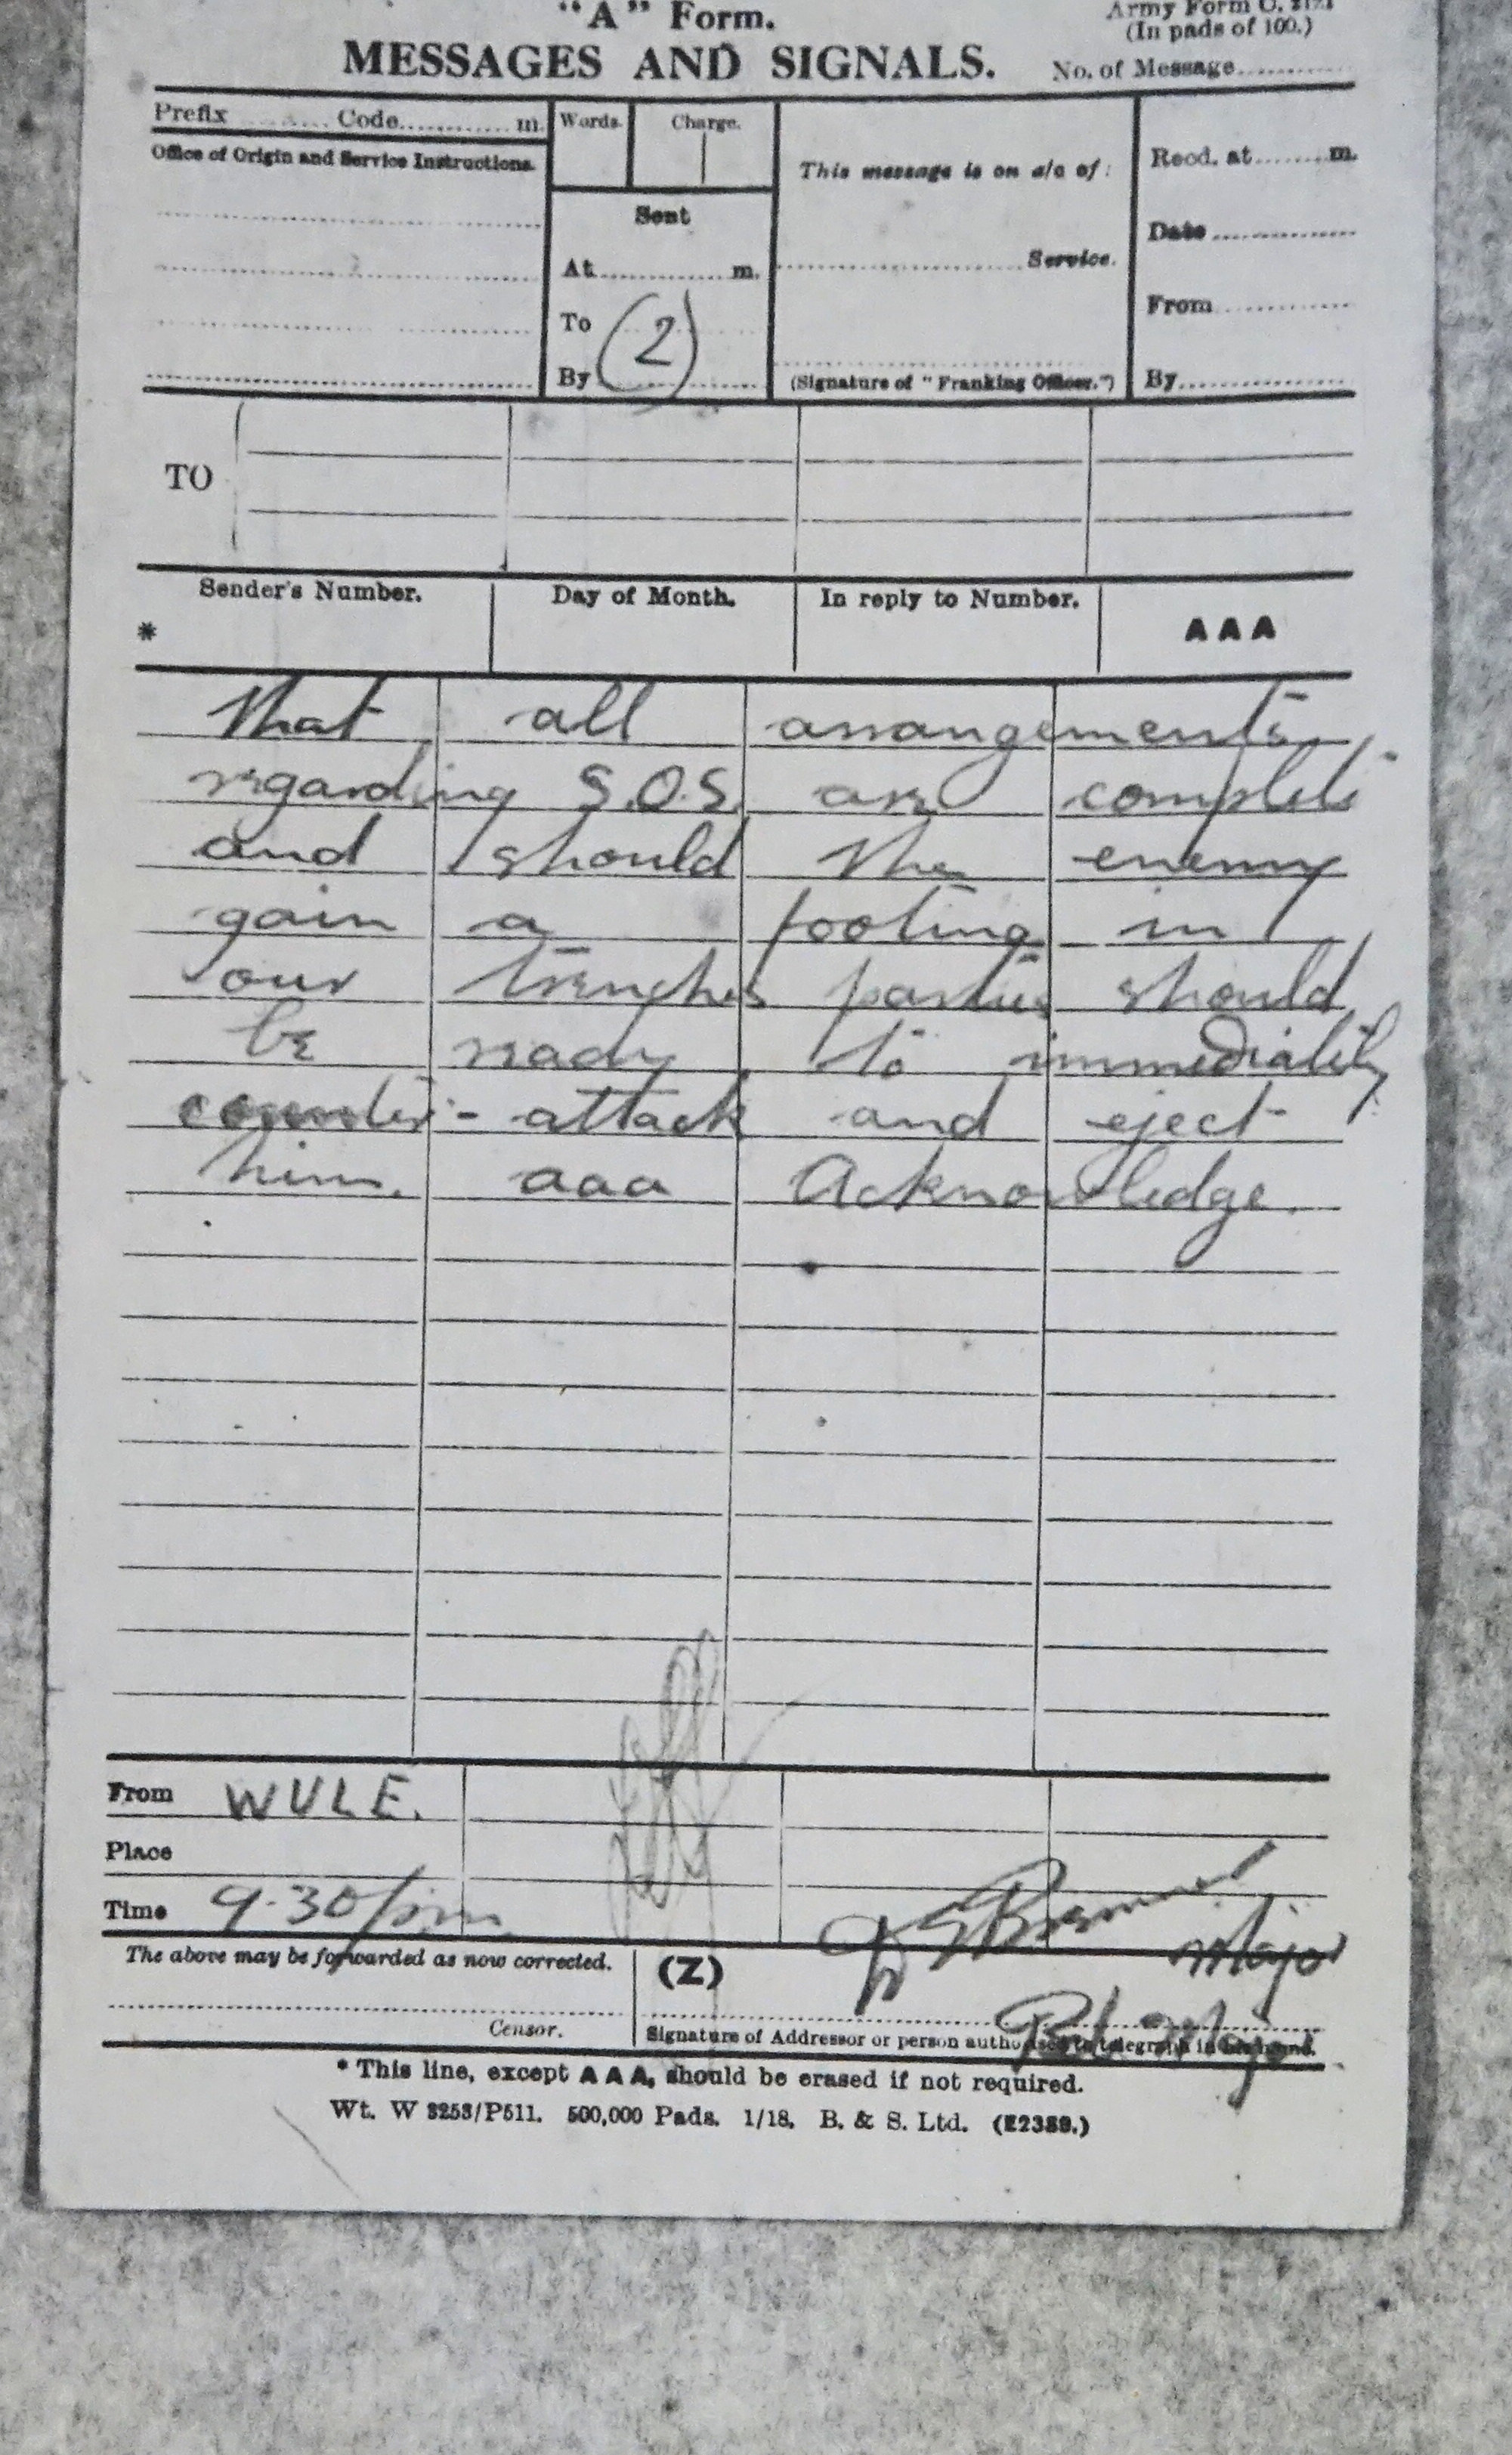 "A" Form.
Army Form C. 2121
(In pads of 100.)
MESSAGES AND SIGNALS.
No. of Message
Prefix Code m.
Words.
Charge.
Office of Origin and Service Instructions.
This message is on a/c of:
Recd. at m.
Sent
Date
At m.
Service.
To
(2)
From
By
(Signature of "Franking Officer.")
By
TO
Sender's Number.
Day of Month.
In reply to Number.
*
AAA
that all arrangements
regarding S.O.S. are complete
and should the enemy
gain a footing in
our trenches parties should
be ready to immediately
counter-attack and eject
him. aaa Acknowledge.
From WULE.
Place
Time 9.30 pm
Major
The above may be forwarded as now corrected.
(Z)
Censor.
Signature of Addressor or person authorised to telegraph in
* This line, except AAA, should be erased if not required.
Wt. W 3253/P511. 500,000 Pads. 1/18. B. & S. Ltd. (E2389.)